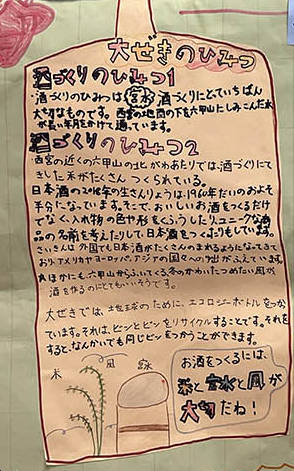 大ぜきのひみつ
酒づくりのひみつ1
酒づくりのひみつは宮水 酒づくりにとっていちばん
大切なものです。西宮の地面の下を六甲山にしみこんだ水
が長い年月をかけて通っています。
酒づくりのひみつ2
西宮の近くの六甲山の北がわあたりでは、酒づくりにて
きした米がたくさん つくられている。
日本酒の2018年の生さんりょうは1960年だいのおよそ
半分になっています。そこで、おいしいお酒をつくるだけ
でなく、入れ物の色や形をくふうしたり、ユニークな商
品の名前を考えたりして、日本酒をつくったりもしています。
さいきんは外国でも日本酒がたくさんのまれるようになってきて
おり、アメリカやヨーロッパ、アジアの国々への輸出がふえています。
ほかにも、六甲山からふいてくる、冬のかわいたつめたい風が
酒を作るのにとてもいいそうです。
大ぜきでは、地球のために、エコロジーボトルをつかっ
ています。それは、ビンとビンをリサイクルすることです。それを
すると、なんかいでも同じビンをつかうことができます。
米 風 宮水
お酒をつくるには、
米と宮水と風が
大切だね!